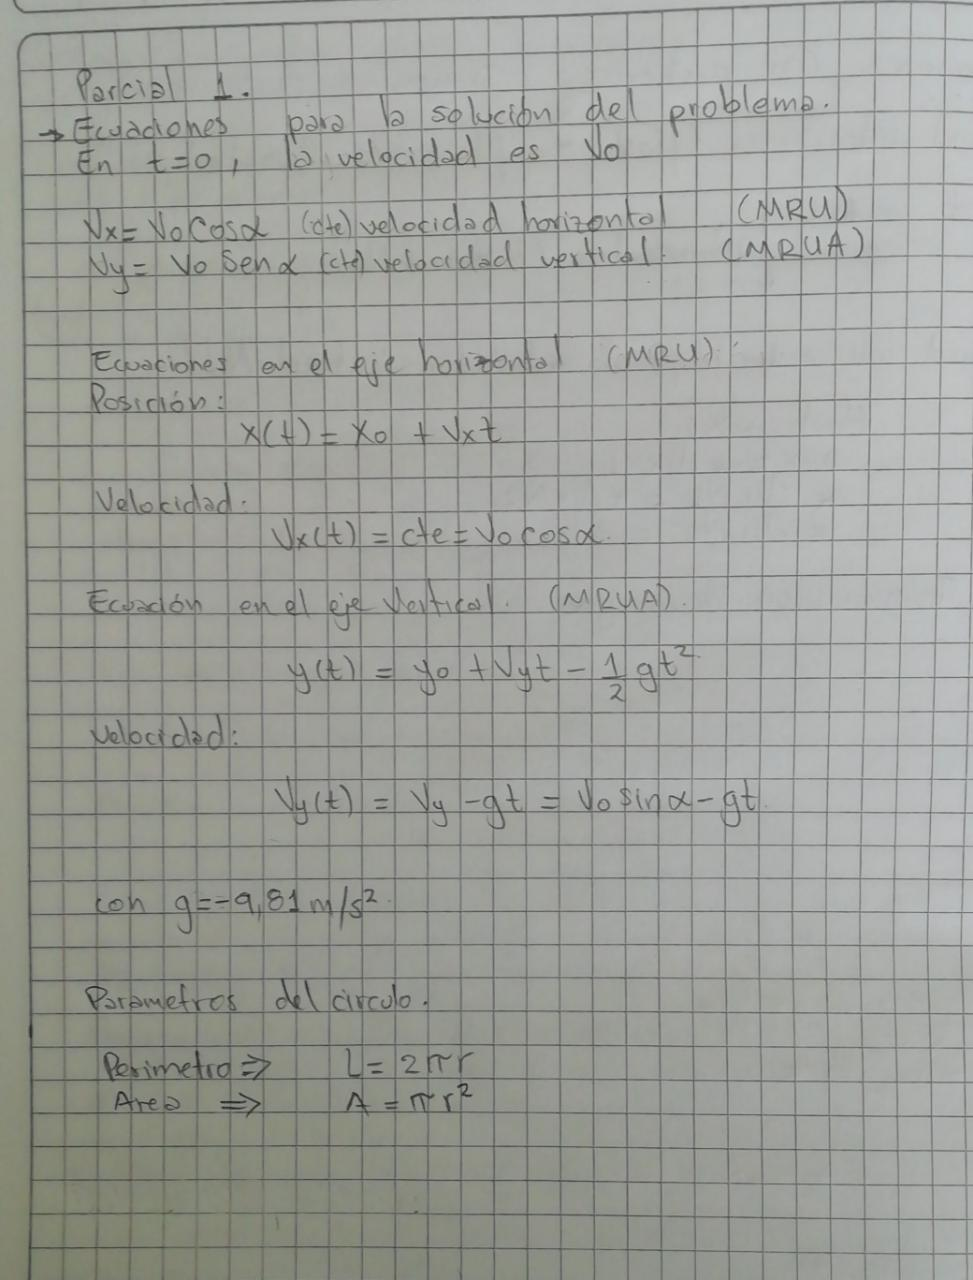 Parcial 1.
→ Ecuaciones para la solución del problema.
En t=0, la velocidad es Vo
Vx= Vo Cosα (cte) velocidad horizontal (MRU)
Vy= Vo Senα (cte) velocidad vertical. (MRUA)
Ecuaciones en el eje horizontal (MRU):
Posición:
x(t) = x0 + Vxt
Velocidad:
Vx(t) = cte = Vo cosα.
Ecuación en el eje Vertical. (MRUA).
y(t) = y0 + Vyt - 1/2 gt²
Velocidad:
Vy(t) = Vy - gt = Vo sinα - gt.
con g=-9,81m/s².
Parametros del circulo.
Perimetro ⇒ L = 2πr
Area ⇒ A = πr²